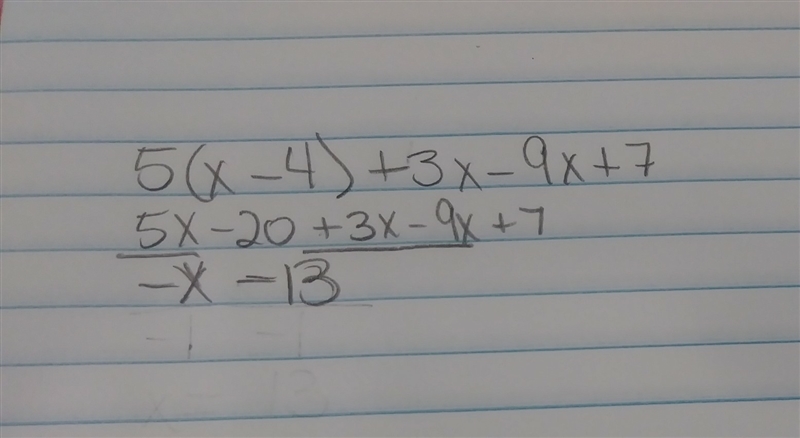 5(x-4)+3x-9x+7
5x-20+3x-9x+7
-x-13
-1 -1